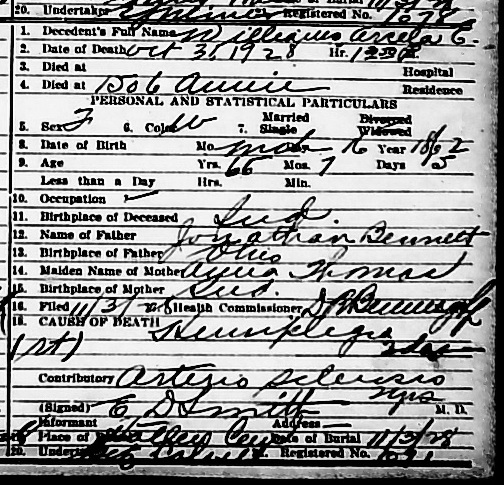 20. Undertaker Registered No. 1678
1. Decedent's Full Name Williams arcela E.
2. Date of Death Oct 31, 1928 Hr.
3. Died at Hospital
4. Died at 506 Annie Residence
PERSONAL AND STATISTICAL PARTICULARS
5. Sex F 6. Color W 7. Married Single Divorced Widowed
8. Date of Birth Mo. Mch 16 Year 1862
9. Age Yrs. 66 Mos. 7 Days 15
Less than a Day Hrs. Min.
10. Occupation
11. Birthplace of Deceased Ind.
12. Name of Father Jonathan Bennett
13. Birthplace of Father Ohio
14. Maiden Name of Mother Anna Thomas
15. Birthplace of Mother Ind.
16. Filed 11/3/28 Health Commissioner
18. CAUSE OF DEATH Hemiplegia
(rt) 2 das
Contributory Arterio sclerosis
yrs
(Signed) E D Smith M. D.
Informant Address
Place of Valley Cem Date of Burial 11/3/28
20. Undert Registered No.